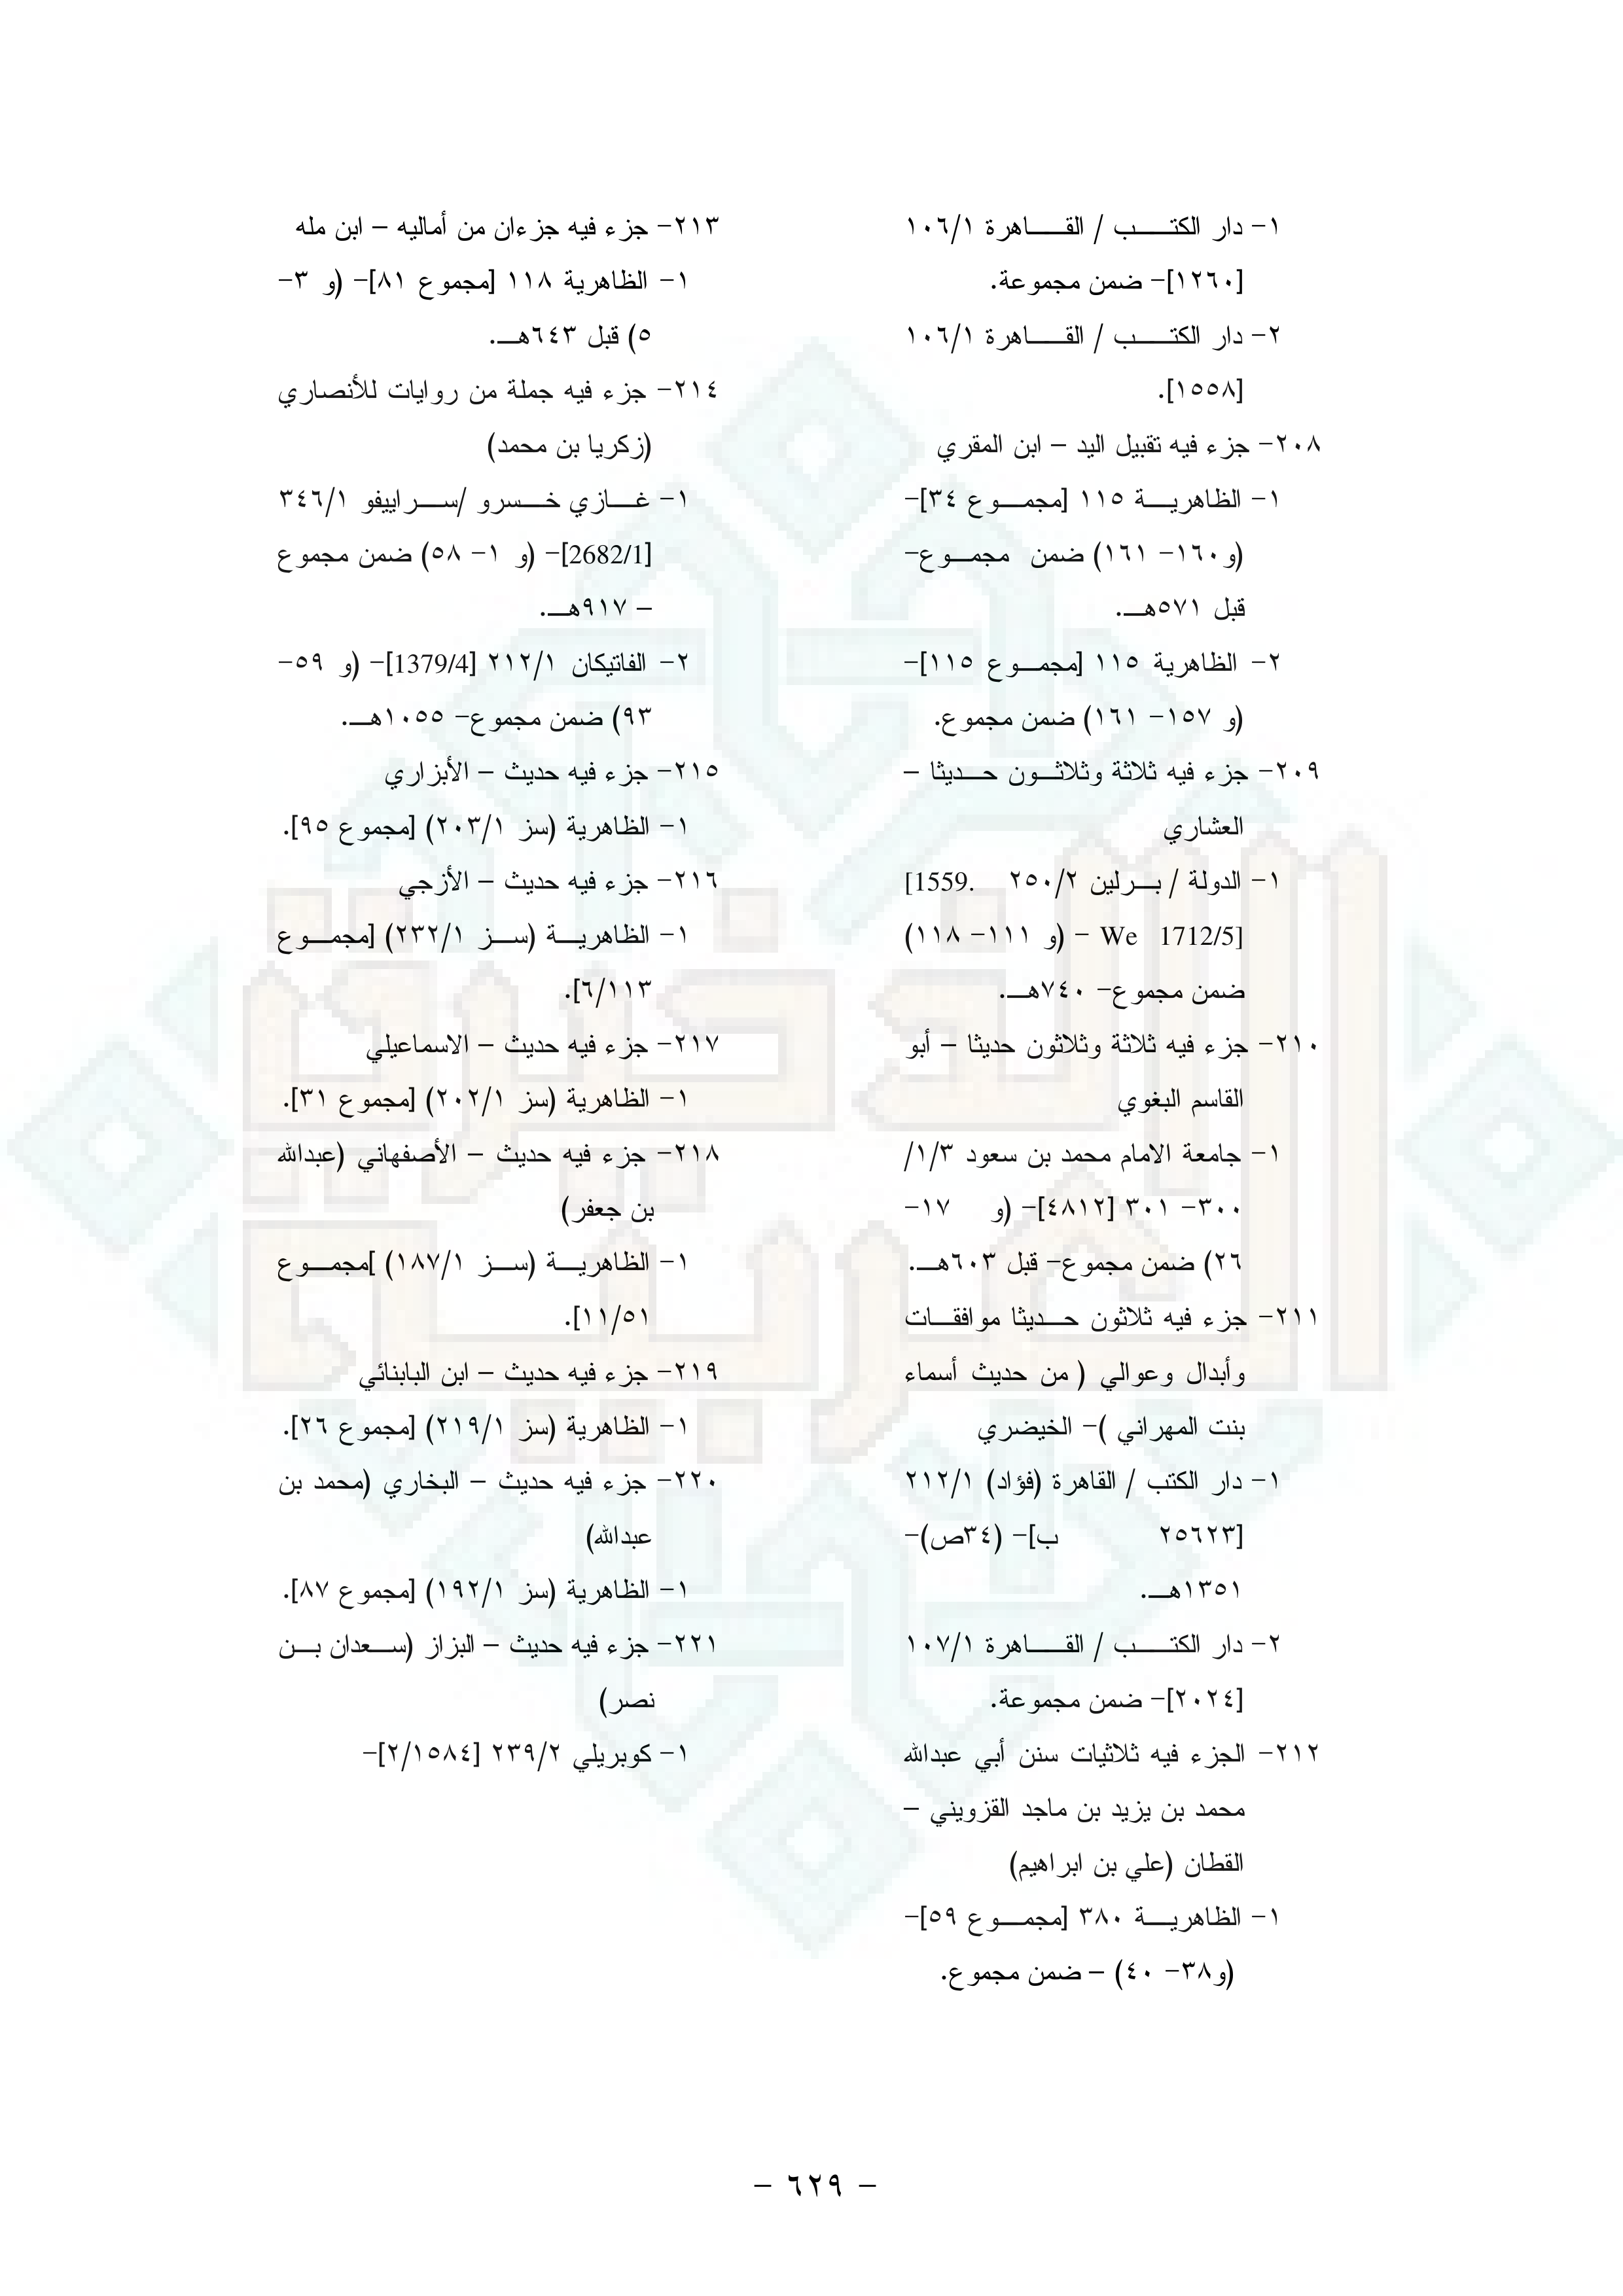 ١- دار الكتب / القاهرة ١٠٦/١
[١٢٦٠]- ضمن مجموعة.
٢- دار الكتب / القاهرة ١٠٦/١
[١٥٥٨].
٢٠٨- جزء فيه تقبيل اليد – ابن المقري
١- الظاهرية ١١٥ [مجموع ٣٤]-
(و١٦٠- ١٦١) ضمن مجموع-
قبل ٥٧١هـ.
٢- الظاهرية ١١٥ [مجموع ١١٥]-
(و ١٥٧- ١٦١) ضمن مجموع.
٢٠٩- جزء فيه ثلاثة وثلاثون حديثا –
العشاري
١- الدولة / برلين ٢٥٠/٢ [1559.
We 1712/5] – (و ١١١- ١١٨)
ضمن مجموع- ٧٤٠هـ.
٢١٠- جزء فيه ثلاثة وثلاثون حديثا – أبو
القاسم البغوي
١- جامعة الامام محمد بن سعود ١/٣/
٣٠٠- ٣٠١ [٤٨١٢]- (و ١٧-
٢٦) ضمن مجموع- قبل ٦٠٣هـ.
٢١١- جزء فيه ثلاثون حديثا موافقات
وأبدال وعوالي ( من حديث أسماء
بنت المهراني )- الخيضري
١- دار الكتب / القاهرة (فؤاد) ٢١٢/١
[٢٥٦٢٣ ب]- (٣٤ص)-
١٣٥١هـ.
٢- دار الكتب / القاهرة ١٠٧/١
[٢٠٢٤]- ضمن مجموعة.
٢١٢- الجزء فيه ثلاثيات سنن أبي عبدالله
محمد بن يزيد بن ماجد القزويني –
القطان (علي بن ابراهيم)
١- الظاهرية ٣٨٠ [مجموع ٥٩]-
(و٣٨- ٤٠) – ضمن مجموع.
٢١٣- جزء فيه جزءان من أماليه – ابن مله
١- الظاهرية ١١٨ [مجموع ٨١]- (و ٣-
٥) قبل ٦٤٣هـ.
٢١٤- جزء فيه جملة من روايات للأنصاري
(زكريا بن محمد)
١- غازي خسرو /سراييفو ٣٤٦/١
[2682/1]- (و ١- ٥٨) ضمن مجموع
– ٩١٧هـ.
٢- الفاتيكان ٢١٢/١ [1379/4]- (و ٥٩-
٩٣) ضمن مجموع- ١٠٥٥هـ.
٢١٥- جزء فيه حديث – الأبزاري
١- الظاهرية (سز ٢٠٣/١) [مجموع ٩٥].
٢١٦- جزء فيه حديث – الأزجي
١- الظاهرية (سز ٢٣٢/١) [مجموع
٦/١١٣].
٢١٧- جزء فيه حديث – الاسماعيلي
١- الظاهرية (سز ٢٠٢/١) [مجموع ٣١].
٢١٨- جزء فيه حديث – الأصفهاني (عبدالله
بن جعفر)
١- الظاهرية (سز ١٨٧/١) ]مجموع
١١/٥١].
٢١٩- جزء فيه حديث – ابن البابنائي
١- الظاهرية (سز ٢١٩/١) [مجموع ٢٦].
٢٢٠- جزء فيه حديث – البخاري (محمد بن
عبدالله)
١- الظاهرية (سز ١٩٢/١) [مجموع ٨٧].
٢٢١- جزء فيه حديث – البزاز (سعدان بن
نصر)
١- كوبريلي ٢٣٩/٢ [٢/١٥٨٤]-
الذخيرة
العربية
– ٦٢٩ –